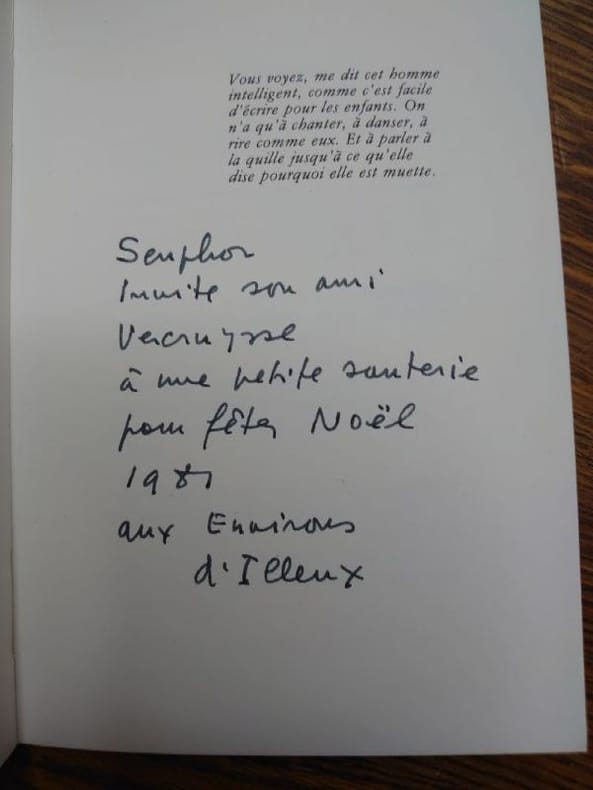 Vous voyez, me dit cet homme
intelligent, comme c'est facile
d'écrire pour les enfants. On
n'a qu'à chanter, à danser, à
rire comme eux. Et à parler à
la quille jusqu'à ce qu'elle
dise pourquoi elle est muette.
Seuphor
Invite son ami
Vercruysse
à une petite sauterie
pour fêter Noël
1981
aux Environs
d'Illeux